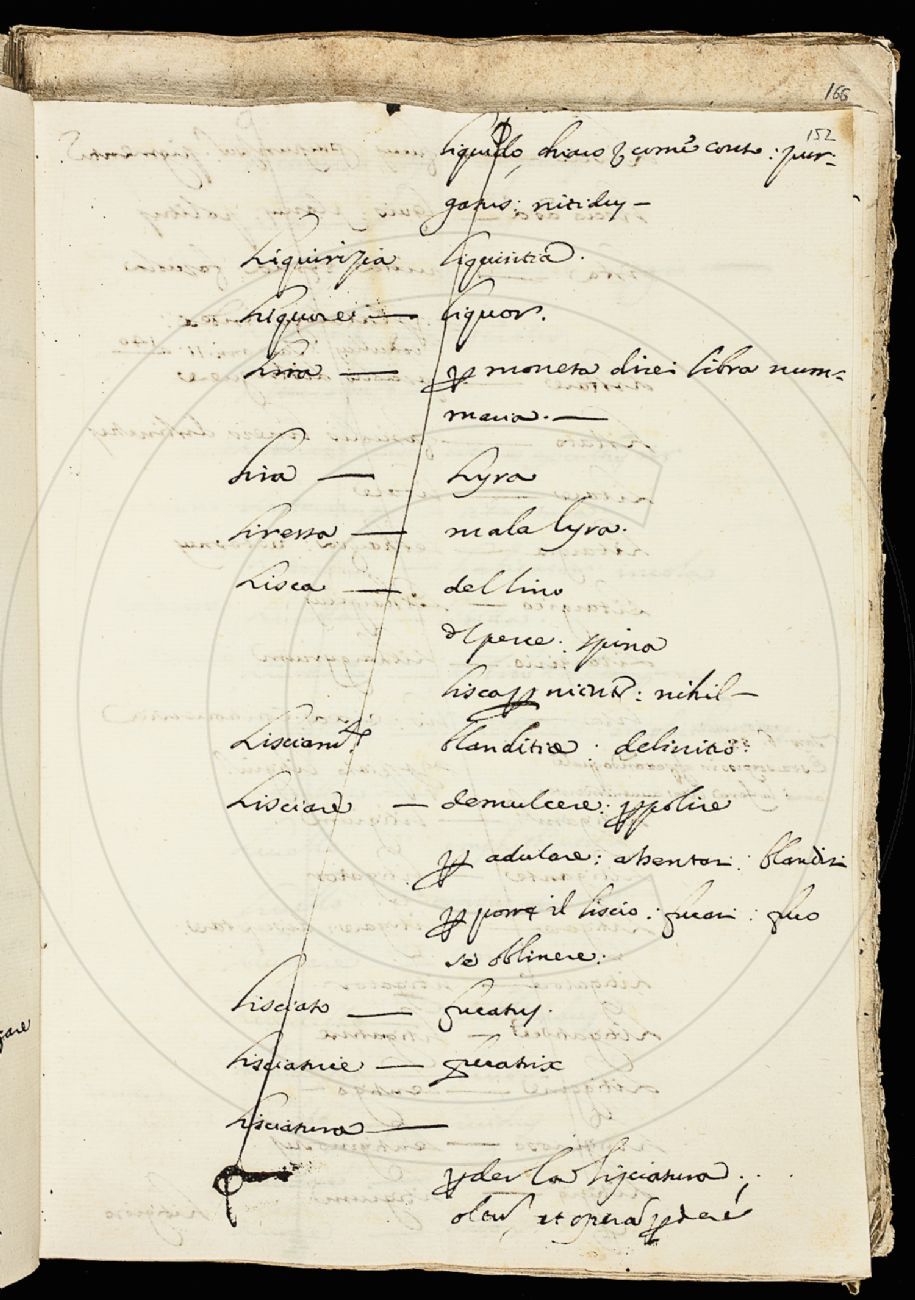 166
152
liquido, chiaro, come conto: pur-
gatus: nitidus —
Liquirizia liquiritia.
Liquore — liquor.
Lira — moneta direi libra num=
maria. —
Lira — Lyra
Liressa — mala lyra.
Lisca — del lino
pesce: spina
lisca niente: nihil —
Lisciam.to blanditiæ. delinitio:
Lisciare — demulcere. polire
adulare: assentari: blandiri
porre il liscio: fucari: fuco
se oblinere:
Lisciato — fucatus.
Lisciatrice — fucatrix
Lisciatura —
perder la lisciatura.
oleum et opera perdere